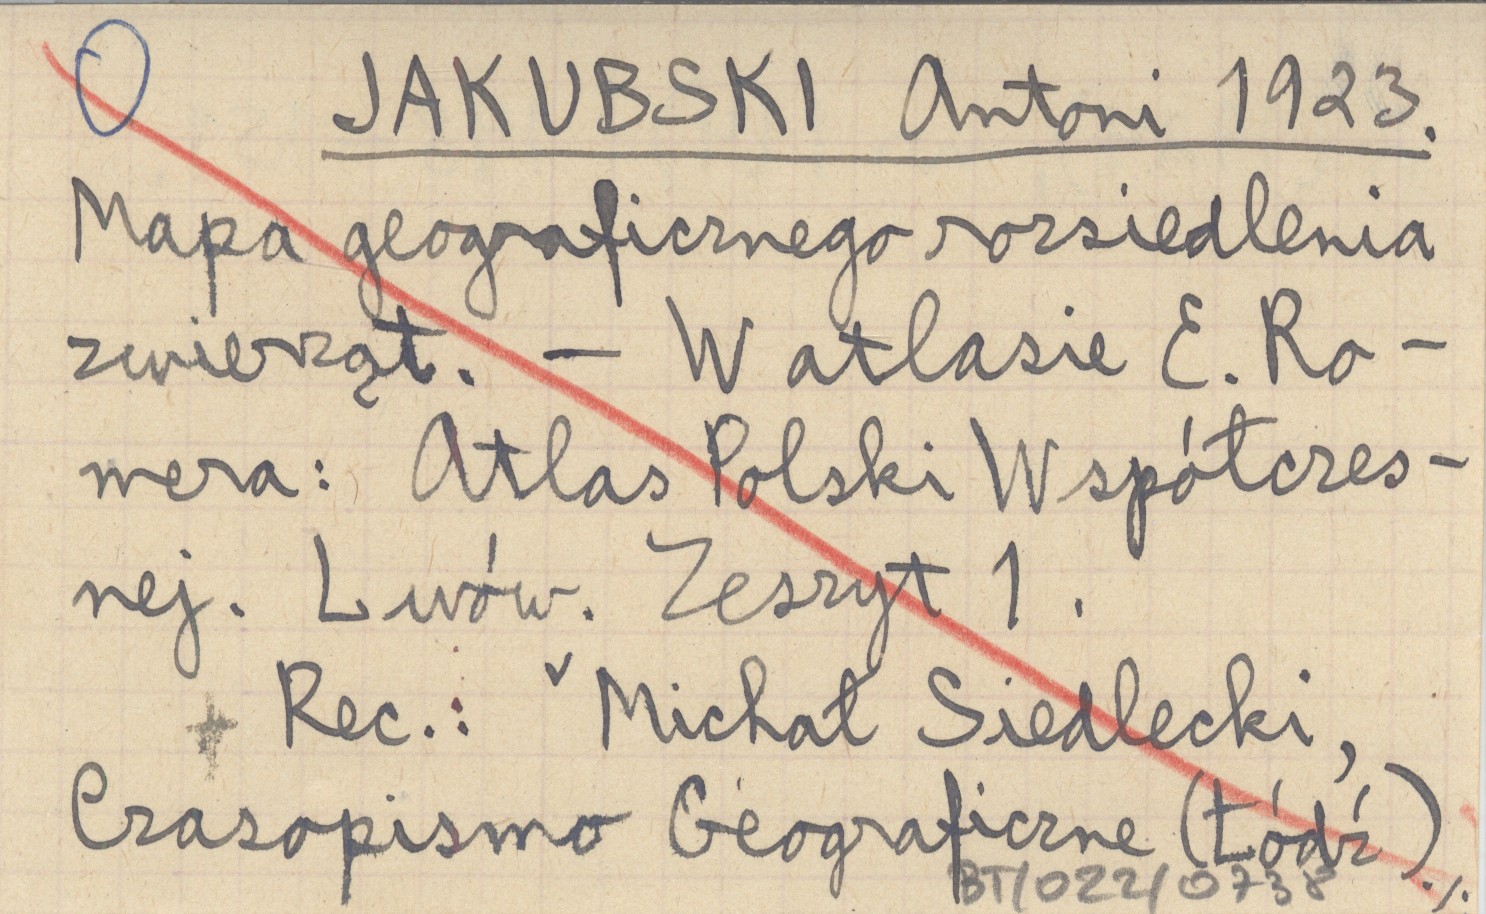 JAKUBSKI Antoni 1923.
Mapa geograficznego rozsiedlenia
zwierząt. – W atlasie E. Ro-
mera: Atlas Polski Współczes-
nej. Lwów. Zeszyt 1.
Rec.: Michał Siedlecki,
Czasopismo Geograficzne (Łódź)./.
BT/022/0738